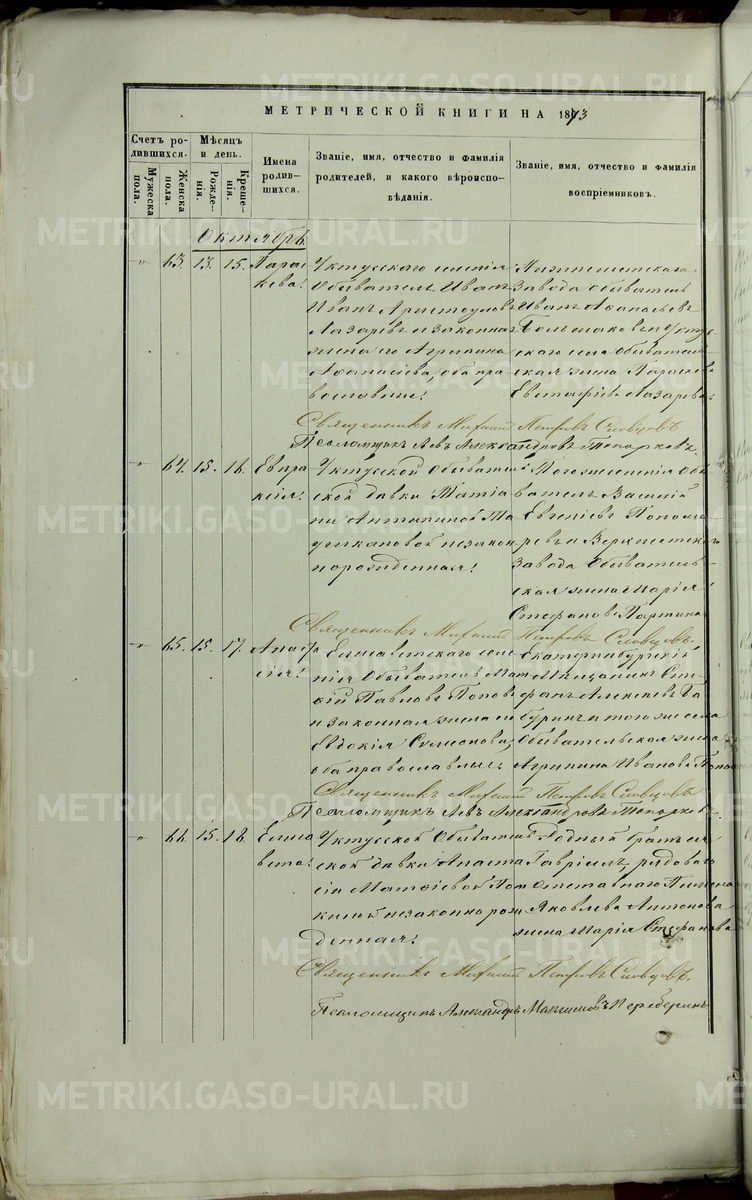 МЕТРИЧЕСКОЙ КНИГИ НА 1873
Счетъ ро-
дившихся.
Мужеска
пола.
Женска
пола.
Мѣсяцъ
и день.
Рожде-
нія.
Креще-
нія.
Имена
родив-
шихся.
Званіе, имя, отчество и фамилія
родителей, и какого вѣроиспо-
вѣданія.
Званіе, имя, отчество и фамилія
воспріемниковъ.
Октябрь
" 63. 13. 15. Парас
кева!
Уктусскаго селенія
Обыватель Иванъ
Иванъ
Лазаревъ и законная
жена его Агрипина
Афанасіева, оба пра
вославные!
Завода Обыватель
Иванъ
Большаковъ и Уктус
скаго села Обыватель
ская жена Параскева
Евстафіева Лазарева!
Священникъ Михаилъ Петровъ Словцовъ
Псаломщикъ Левъ Александровъ Топорковъ.
" 64. 15. 16. Евпра
ксія!
Уктусской Обыватель
ской дѣвки Татіа
ны Антипиной
незакон
норожденная!
Того же селенія Обы
ватель Василій
Евгеніевъ Пономa
ревъ и Верхисетскаго
Завода Обыватель
ская жена Марія
Стефанова
Священникъ Михаилъ Петровъ Словцовъ.
" 65. 15. 17. Анаста
сія!
Елисаветскаго селе
нія Обыватель Мат
ѳій Павловъ Поповъ
и законная жена его
Евдокія Симеонова,
оба православные!
Екатеринбургскій
Мѣщанинъ Сте
фанъ Алексѣевъ Ба
буринъ и того же села
Обывательская жена
Агрипина Иванова Попова
Священникъ Михаилъ Петровъ Словцовъ
Псаломщикъ Левъ Александровъ Топорковъ.
" 66. 15. 18. Елиса
вета!
Уктусской Обыватель
ской дѣвки Анаста
сіи Матѳіевой
незаконнорож
денная!
Родный братъ ея
Гавріилъ, рядоваго
Отставнаго
Яковлева Антонова
жена Марія Стефанова
Священникъ Михаилъ Петровъ Словцовъ.
Псаломщикъ Александръ Максимовъ Переберинъ
METRIKI.GASO-URAL.RU